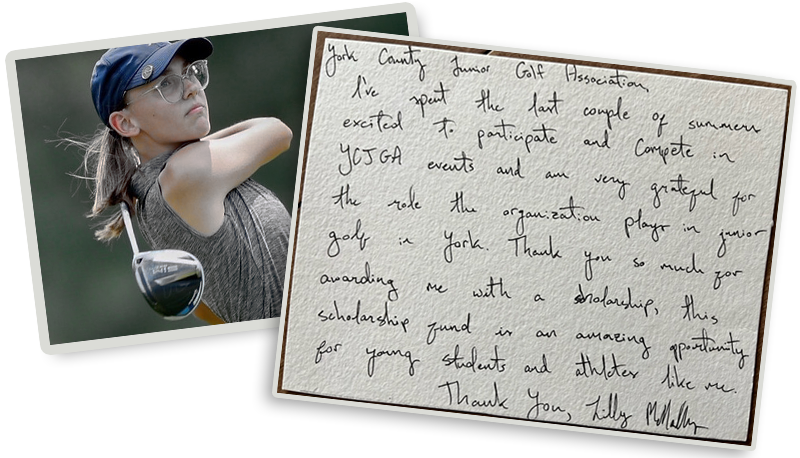 York County Junior Golf Association,
I've spent the last couple of summers
excited to participate and compete in
YCJGA events and am very grateful for
the role the organization plays in junior
golf in York. Thank you so much for
awarding me with a scholarship, this
scholarship fund is an amazing opportunity
for young students and athletes like me.
Thank You, Lilly McNally